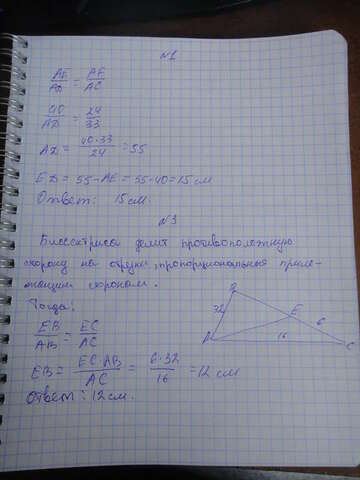 №1
AE/AD = AF/AC
40/AD = 24/33
AD = 40·33/24 = 55
ED = 55-AE = 55-40=15 см
Ответ: 15 см.
№3
Биссектриса делит противоположную
сторону на отрезки, пропорциональные приле-
жащим сторонам.
Тогда:
EB/AB = EC/AC
EB = EC·AB/AC = 6·32/16 = 12 см
Ответ: 12 см.
B
32
E
6
A
16
C